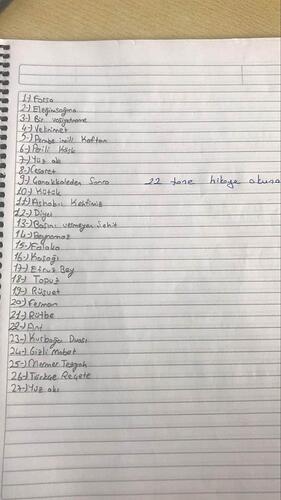 1-) Forsa
2-) Eleğimsağma
3-) Bir vasiyetname
4-) Velinimet
5-) Pembe incili Kaftan
6-) Perili Köşk
7-) Yüz akı
8-) Cesaret
9-) Çanakkaleden Sonra 22 tane hikaye okuna
10-) Kütük
11-) Ashab-ı Kehfimiz
12-) Diyet
13-) Başını vermeyen Şehit
14-) Beynamaz
15-) Falaka
16-) Kaşağı
17-) Efruz Bey
18-) Topuz
19-) Rüşvet
20-) Ferman
21-) Rütbe
22-) Ant
23-) Kurbağa Duası
24-) Gizli Mabet
25-) Mermer Tezgah
26-) Türkçe Reçete
27-) Yüz akı